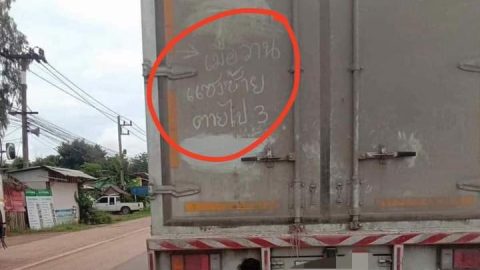 → เมื่อวาน
แซงซ้าย
ตายไป 3